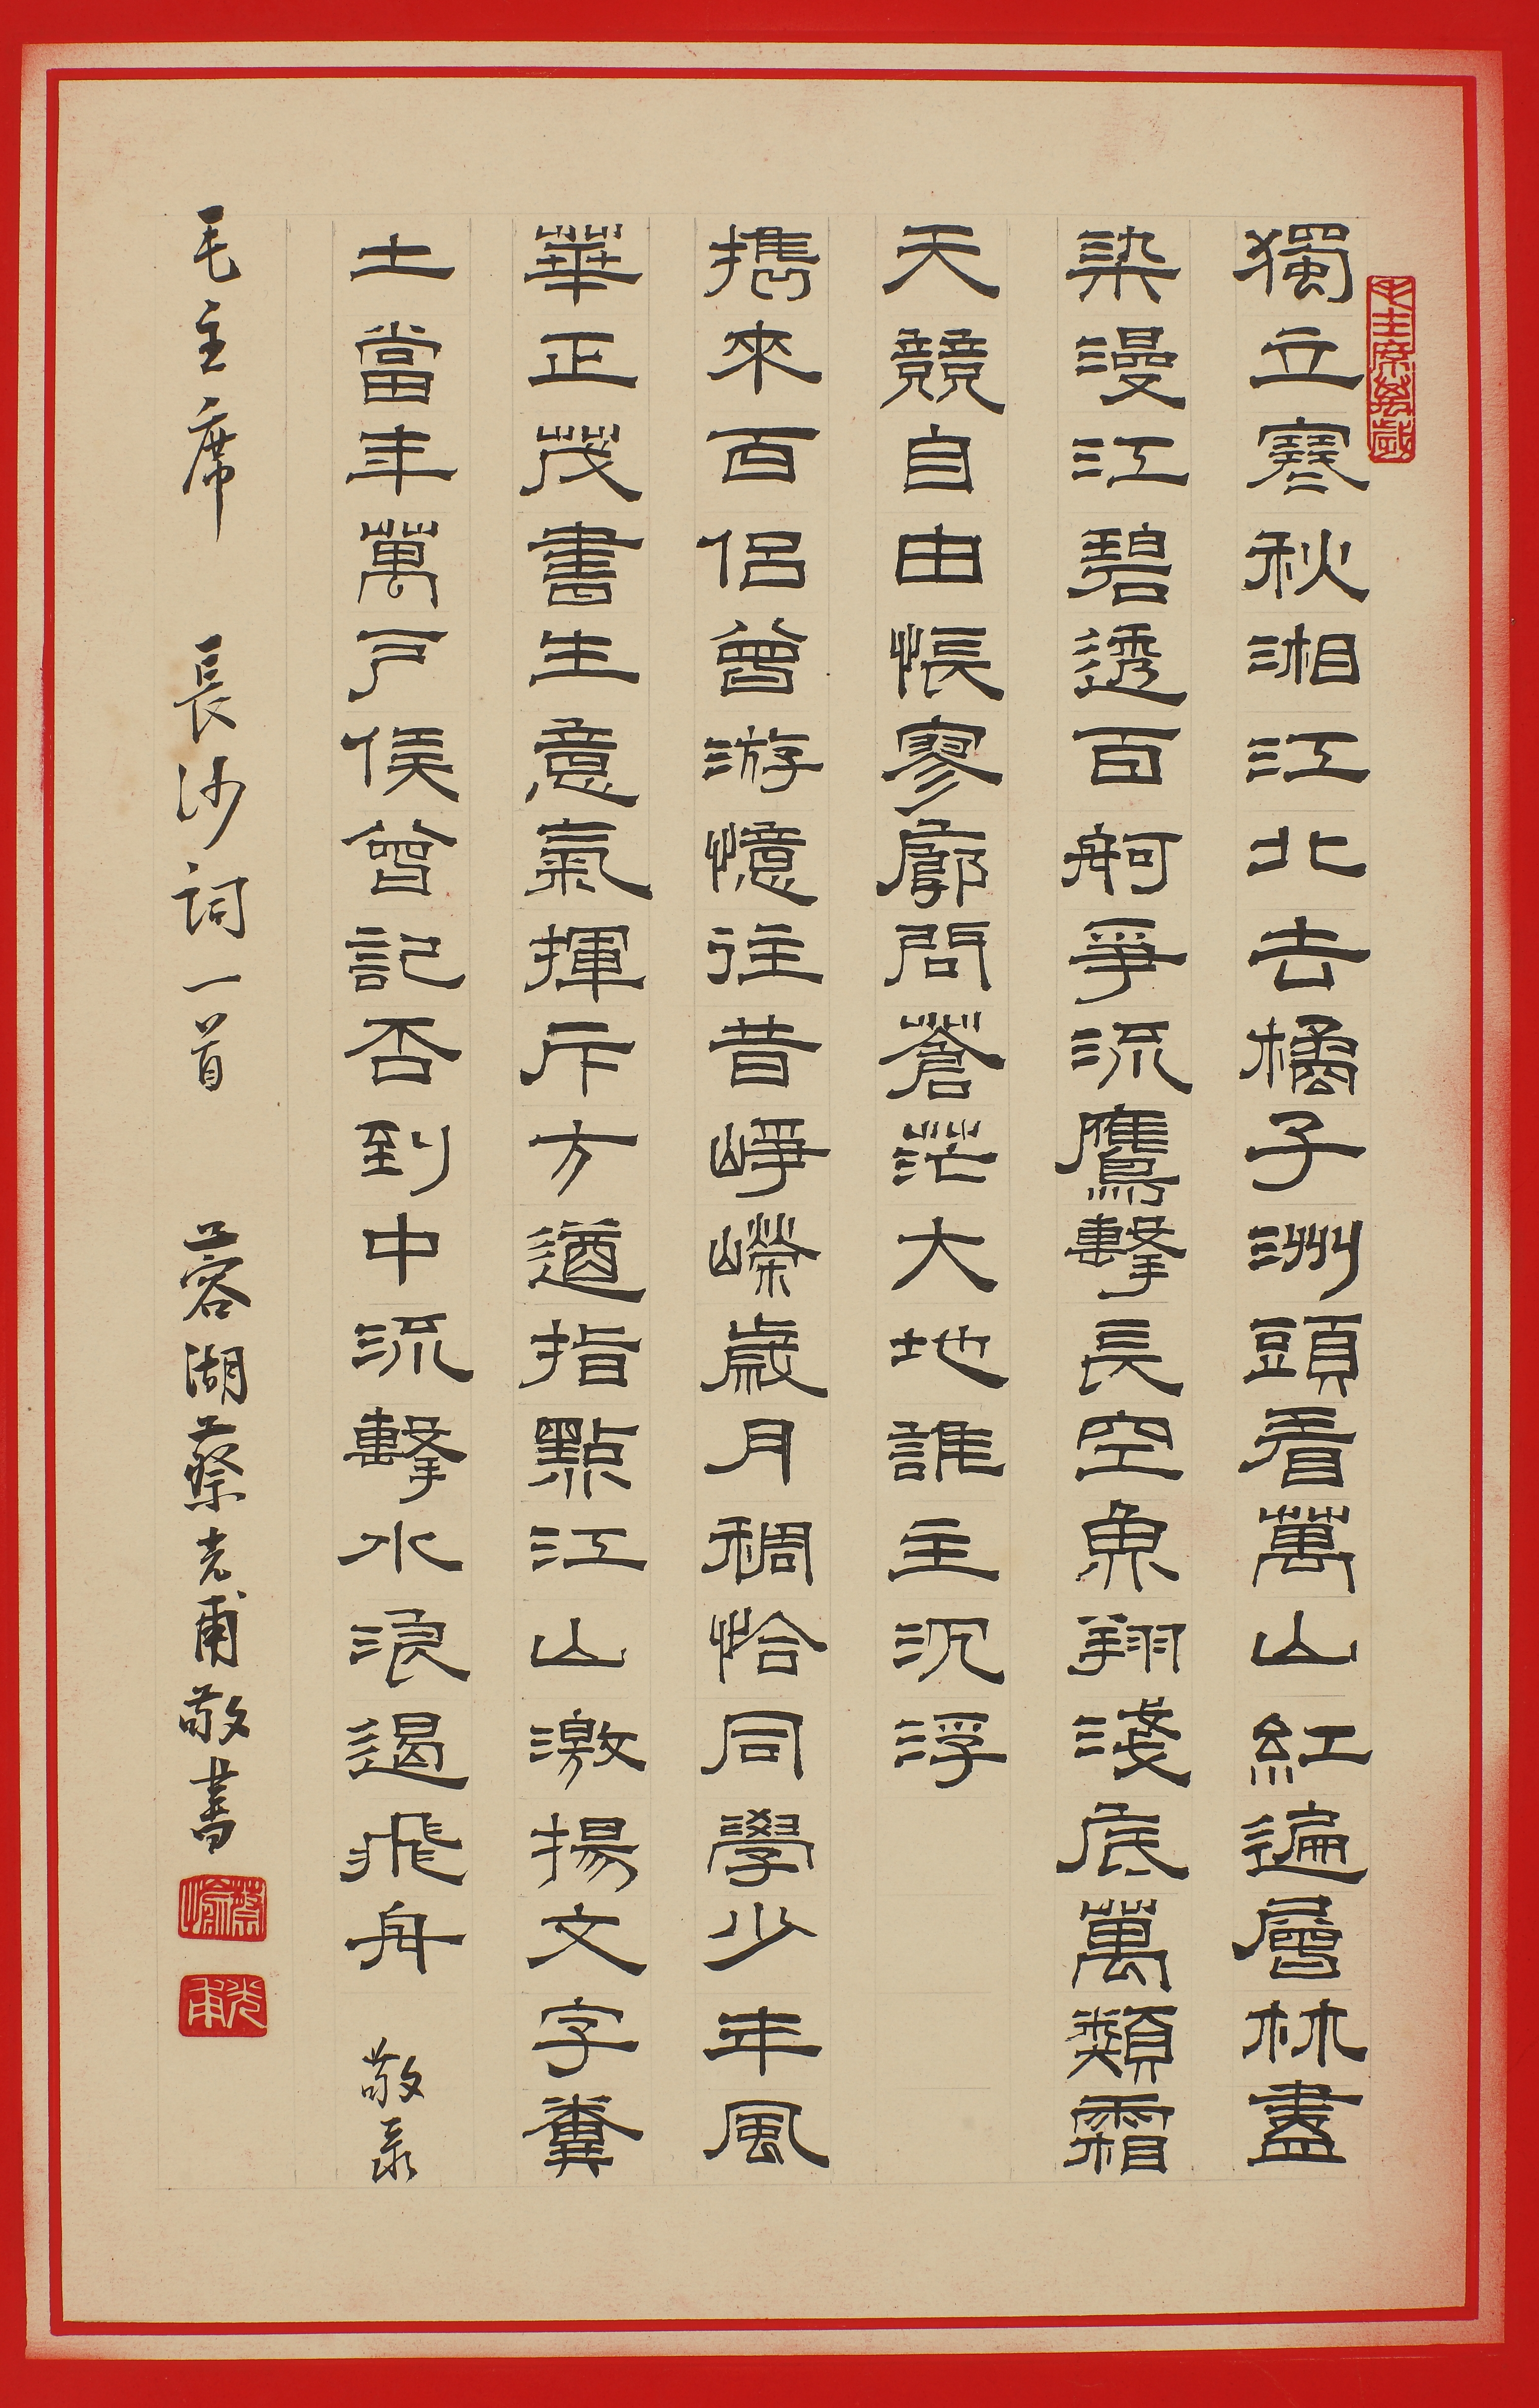 毛主席萬歲
獨立寒秋湘江北去橘子洲頭看萬山紅遍層林盡
染漫江碧透百舸爭流鷹擊長空魚翔淺底萬類霜
天競自由悵寥廓問蒼茫大地誰主沉浮
擕來百侶曾游憶往昔崢嶸歲月稠恰同學少年風
華正茂書生意氣揮斥方遒指點江山激揚文字糞
土當年萬戶侯曾記否到中流擊水浪遏飛舟 敬录
毛主席 長沙詞一首 蓉湖蔡光甫敬書
蔡愉
光甫